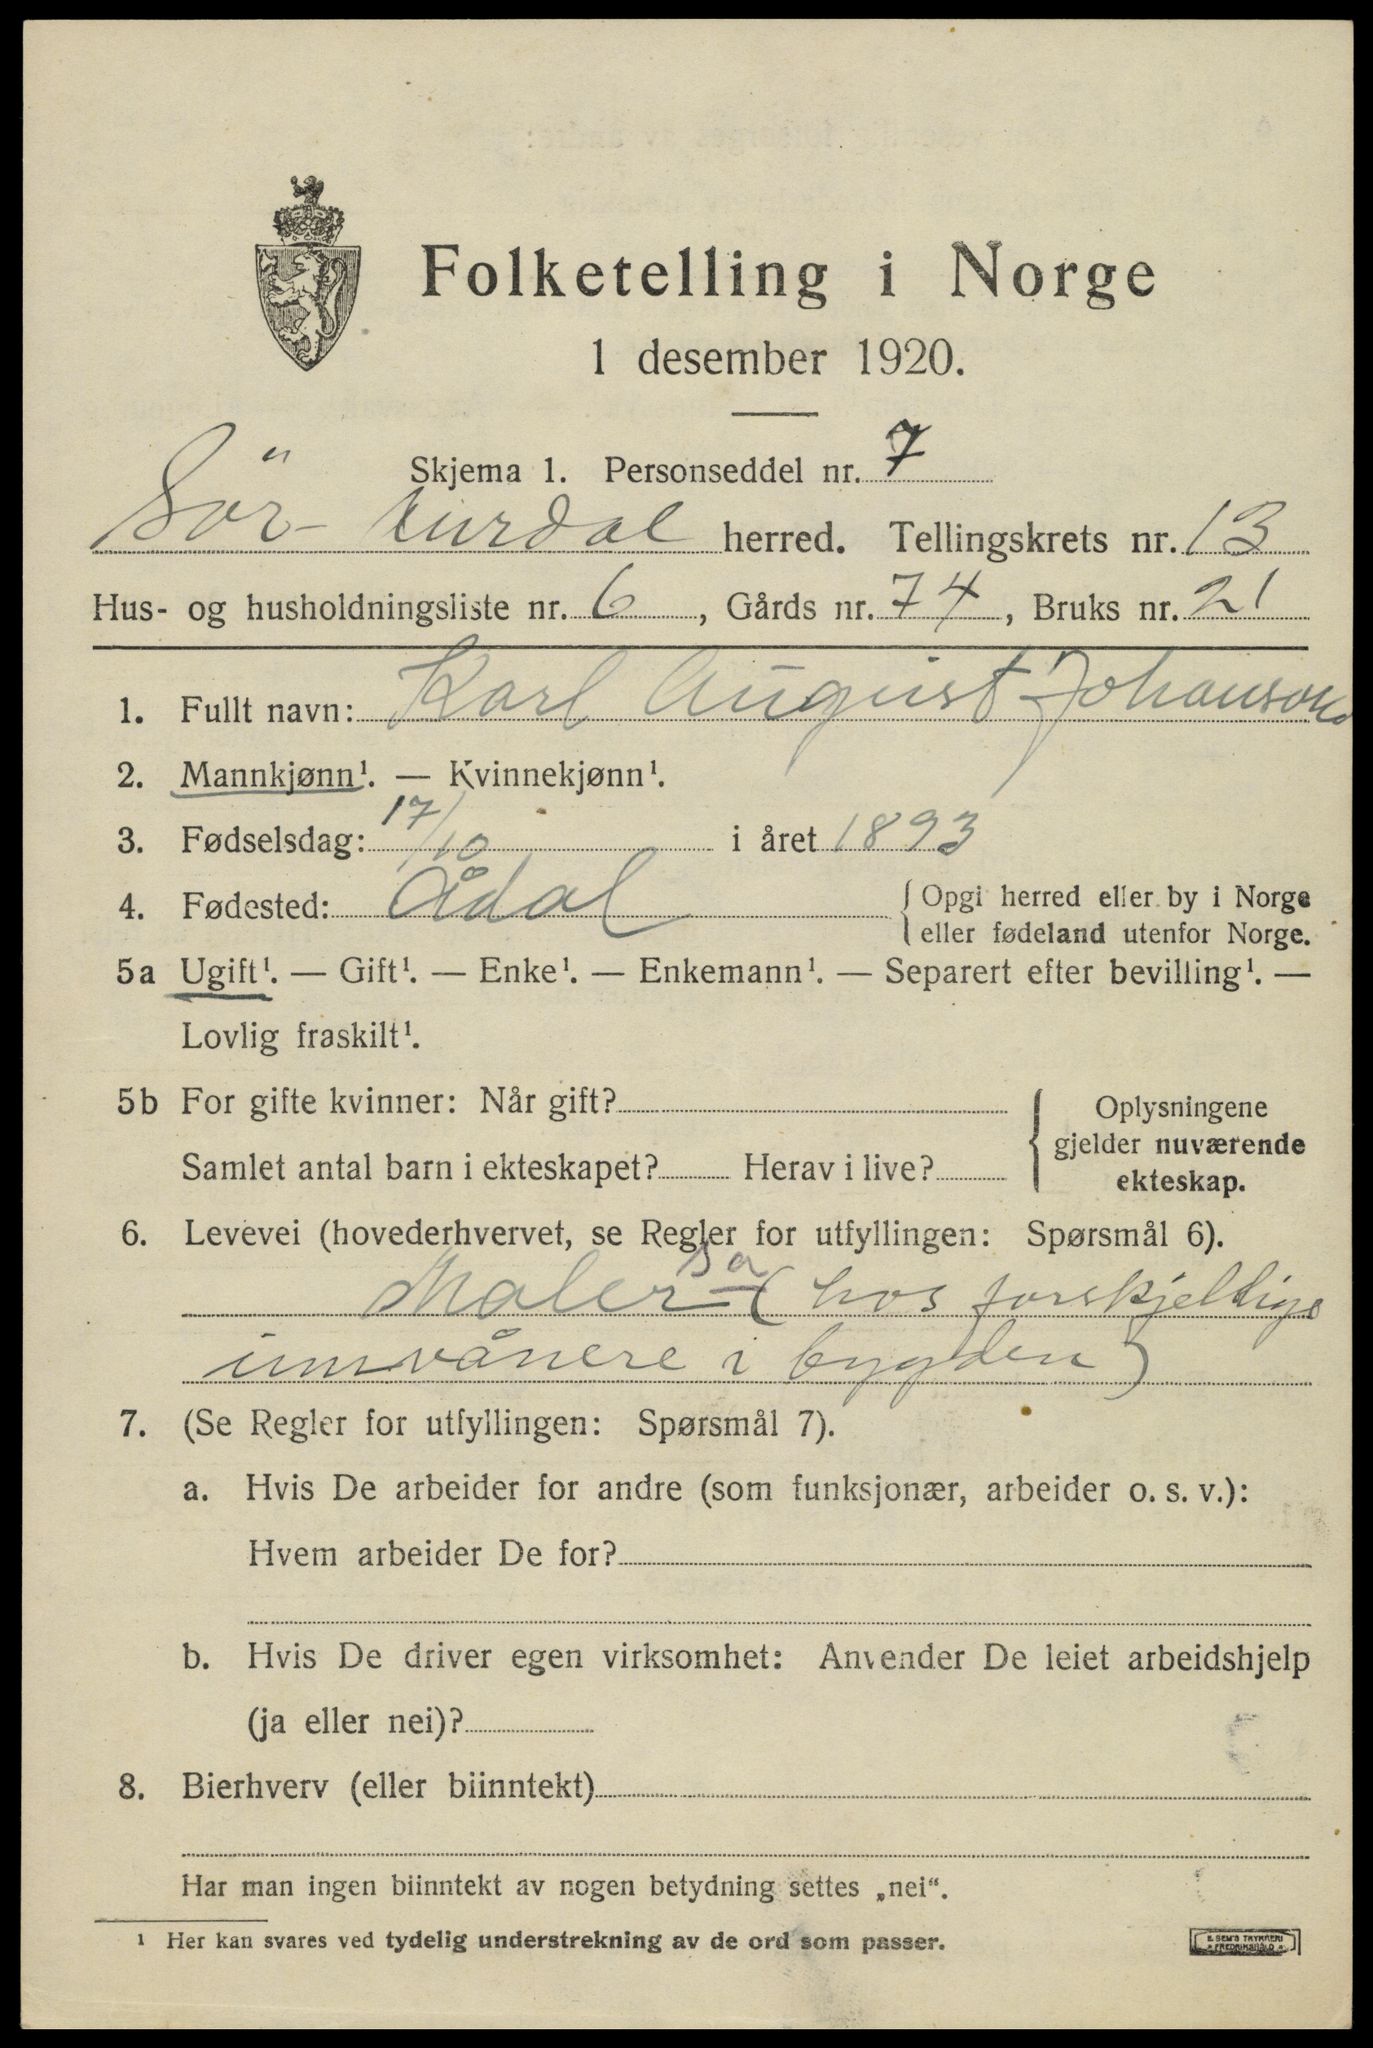 Folketelling i Norge
1 desember 1920.
Skjema 1. Personseddel nr. 7
Sör-Aurdal herred. Tellingskrets nr. 13
Hus- og husholdningsliste nr. 6, Gårds nr. 74, Bruks nr. 21
1. Fullt navn: Karl August Johanson
2. Mannkjønn¹. — Kvinnekjønn¹.
3. Fødselsdag: 17/10 i året 1893
4. Fødested: Ådal { Opgi herred eller by i Norge
eller fødeland utenfor Norge.
5a Ugift¹. — Gift¹. — Enke¹. — Enkemann¹. — Separert efter bevilling¹. —
Lovlig fraskilt¹.
5b For gifte kvinner: Når gift?
Samlet antal barn i ekteskapet? Herav i live?
Oplysningene
gjelder nuværende
ekteskap.
6. Levevei (hovederhvervet, se Regler for utfyllingen: Spørsmål 6).
Maler (hos forskjellige
innvånere i bygden)
7. (Se Regler for utfyllingen: Spørsmål 7).
a. Hvis De arbeider for andre (som funksjonær, arbeider o. s. v.):
Hvem arbeider De for?
b. Hvis De driver egen virksomhet: Anvender De leiet arbeidshjelp
(ja eller nei)?
8. Bierhverv (eller biinntekt)
Har man ingen biinntekt av nogen betydning settes „nei“.
¹ Her kan svares ved tydelig understrekning av de ord som passer.
E. SEM'S TRYKKERI
FREDRIKSHALD